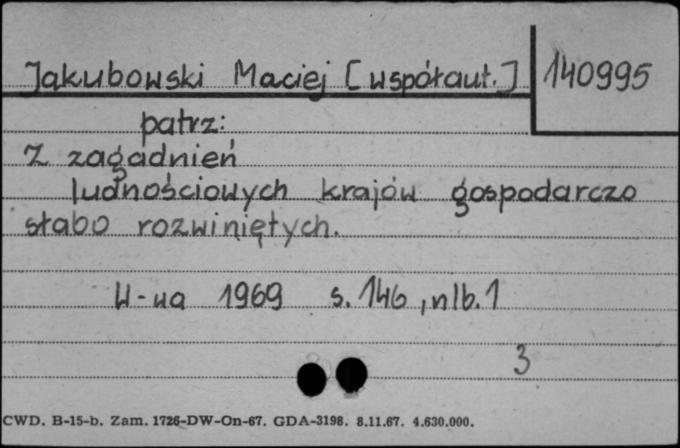 Jakubowski Maciej [współaut.] 140995
patrz:
Z zagadnień
ludnościowych krajów gospodarczo
słabo rozwiniętych.
W-wa 1969 s. 146, nlb. 1
3
CWD. B-15-b. Zam. 1726-DW-On-67. GDA-3198. 8.11.67. 4.630.000.